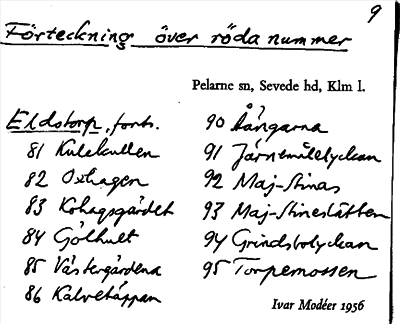 9
Förteckning över röda nummer
Pelarne sn, Sevede hd, Klm l.
Eldstorp, forts.
81 Kulekullen
82 Oxhagen
83 Kohagsgärdet
84 Gölhult
85 Västergårdena
86 Kalvetäppan
90 Aängarna
91 Järnemålelyckan
92 Maj-Stinas
93 Maj-Stineslätten
94 Grindstolyckan
95 Torpemossen
Ivar Modéer 1956